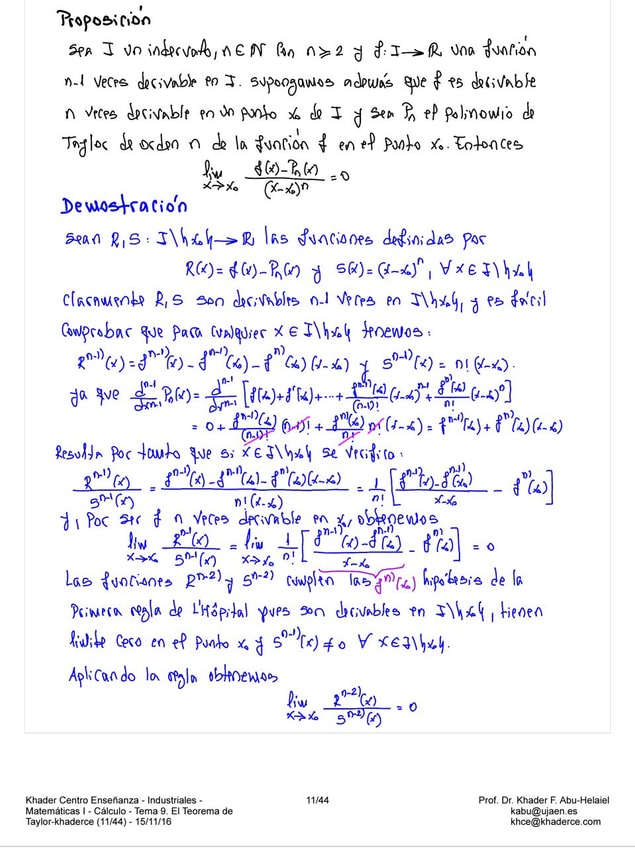 Proposición
Sea I un intervalo, n∈N con n⩾2 y f: I→R una función
n-1 veces derivable en I. supongamos además que f es derivable
n veces derivable en un punto x₀ de I y sea Pn el polinomio de
Taylor de orden n de la función f en el punto x₀. Entonces
lim x→x₀ (f(x)-Pn(x))/(x-x₀)ⁿ = 0
Demostración
Sean R,S: I\{x₀}→R las funciones definidas por
R(x)=f(x)-Pn(x) y S(x)=(x-x₀)ⁿ, ∀x∈I\{x₀}
Claramente R,S son derivables n-1 veces en I\{x₀}, y es fácil
Comprobar que para cualquier x∈I\{x₀} tenemos:
Rⁿ⁻¹⁾(x)=fⁿ⁻¹⁾(x)-fⁿ⁻¹⁾(x₀)-fⁿ⁾(x₀)(x-x₀) y Sⁿ⁻¹⁾(x)=n!(x-x₀).
ya que dⁿ⁻¹/dxⁿ⁻¹ Pn(x)= dⁿ⁻¹/dxⁿ⁻¹ [f(x₀)+f'(x₀)+⋯+ fⁿ⁻¹⁾(x₀)/(n-1)! (x-x₀)ⁿ⁻¹+ fⁿ⁾(x₀)/n! (x-x₀)ⁿ]
= 0+ fⁿ⁻¹⁾(x₀)/(n-1)! (n-1)!+ fⁿ⁾(x₀)/n! n!(x-x₀)= fⁿ⁻¹⁾(x₀)+fⁿ⁾(x₀)(x-x₀)
Resulta por tanto que si x∈I\{x₀} se verifica:
Rⁿ⁻¹⁾(x)/Sⁿ⁻¹⁾(x) = (fⁿ⁻¹⁾(x)-fⁿ⁻¹⁾(x₀)-fⁿ⁾(x₀)(x-x₀))/(n!(x-x₀)) = 1/n! [(fⁿ⁻¹⁾(x)-fⁿ⁻¹⁾(x₀))/(x-x₀) - fⁿ⁾(x₀)]
y, Por ser f n veces derivable en x₀, obtenemos
lim x→x₀ Rⁿ⁻¹⁾(x)/Sⁿ⁻¹⁾(x) = lim x→x₀ 1/n! [(fⁿ⁻¹⁾(x)-fⁿ⁻¹⁾(x₀))/(x-x₀) - fⁿ⁾(x₀)] = 0
Las funciones Rⁿ⁻²⁾ y Sⁿ⁻²⁾ cumplen las fⁿ⁾(x₀) hipótesis de la
Primera regla de L'Hôpital pues son derivables en I\{x₀}, tienen
límite cero en el punto x₀ y Sⁿ⁻¹⁾(x)≠0 ∀ x∈I\{x₀}.
Aplicando la regla obtenemos
lim x→x₀ Rⁿ⁻²⁾(x)/Sⁿ⁻²⁾(x) = 0
Khader Centro Enseñanza - Industriales -
Matemáticas I - Cálculo - Tema 9. El Teorema de
Taylor-khaderce (11/44) - 15/11/16
11/44
Prof. Dr. Khader F. Abu-Helaiel
kabu@ujaen.es
khce@khaderce.com